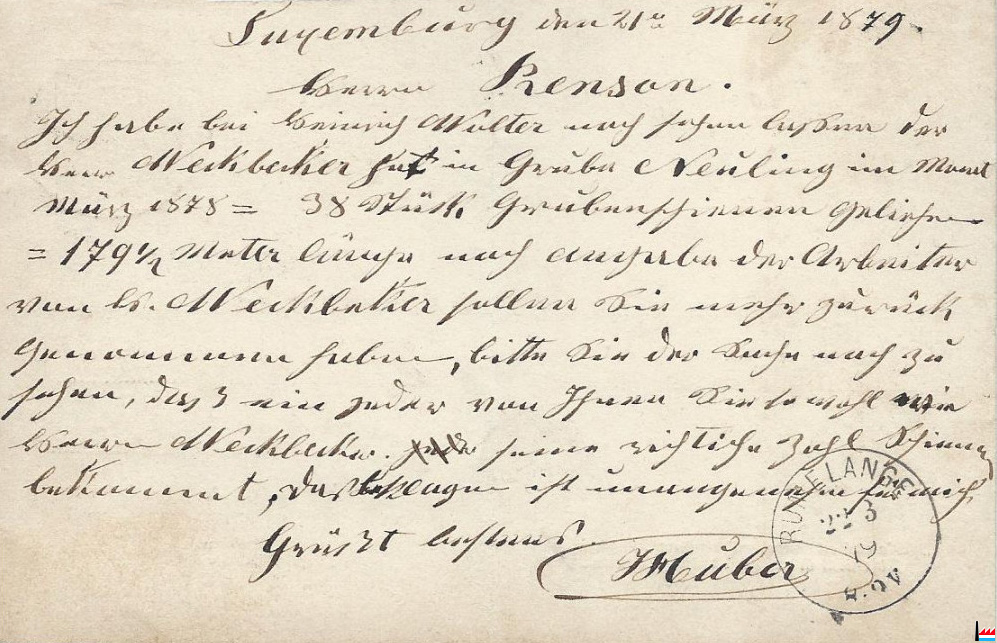 Luxemburg den 21n März 1879.
Herrn Renson.
Ich habe bei Heinrich Wolter nach sehen lassen der
Herr Weckbecker hat in Grube Neuling im Monat
März 1878 = 38 Stück Grubenschienen geliehen
= 179 1/2 Meter länge nach angabe der Arbeiter
von H. Weckbeker sollen Sie mehr zurück
genommen haben, bitte Sie der Sache nach zu
sehen, daß ein jeder von Ihnen Sie sowohl wie
Herrn Weckbecker. seine richtiche Zahl Schienen
bekommt, das beklagen ist unangenehm für mich
Grüßt bestens.
JHuber
RUMELANGE
22 3
79
8-9 V